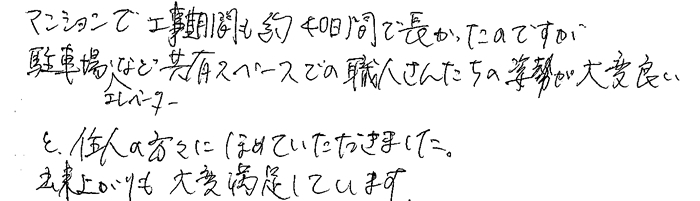 マンションで工事期間も約40日間で長かったのですが
駐車場、エレベーターなど共有スペースでの職人さんたちの姿勢が大変良い
と、住人の方々にほめていただきました。
出来上がりも大変満足しています。